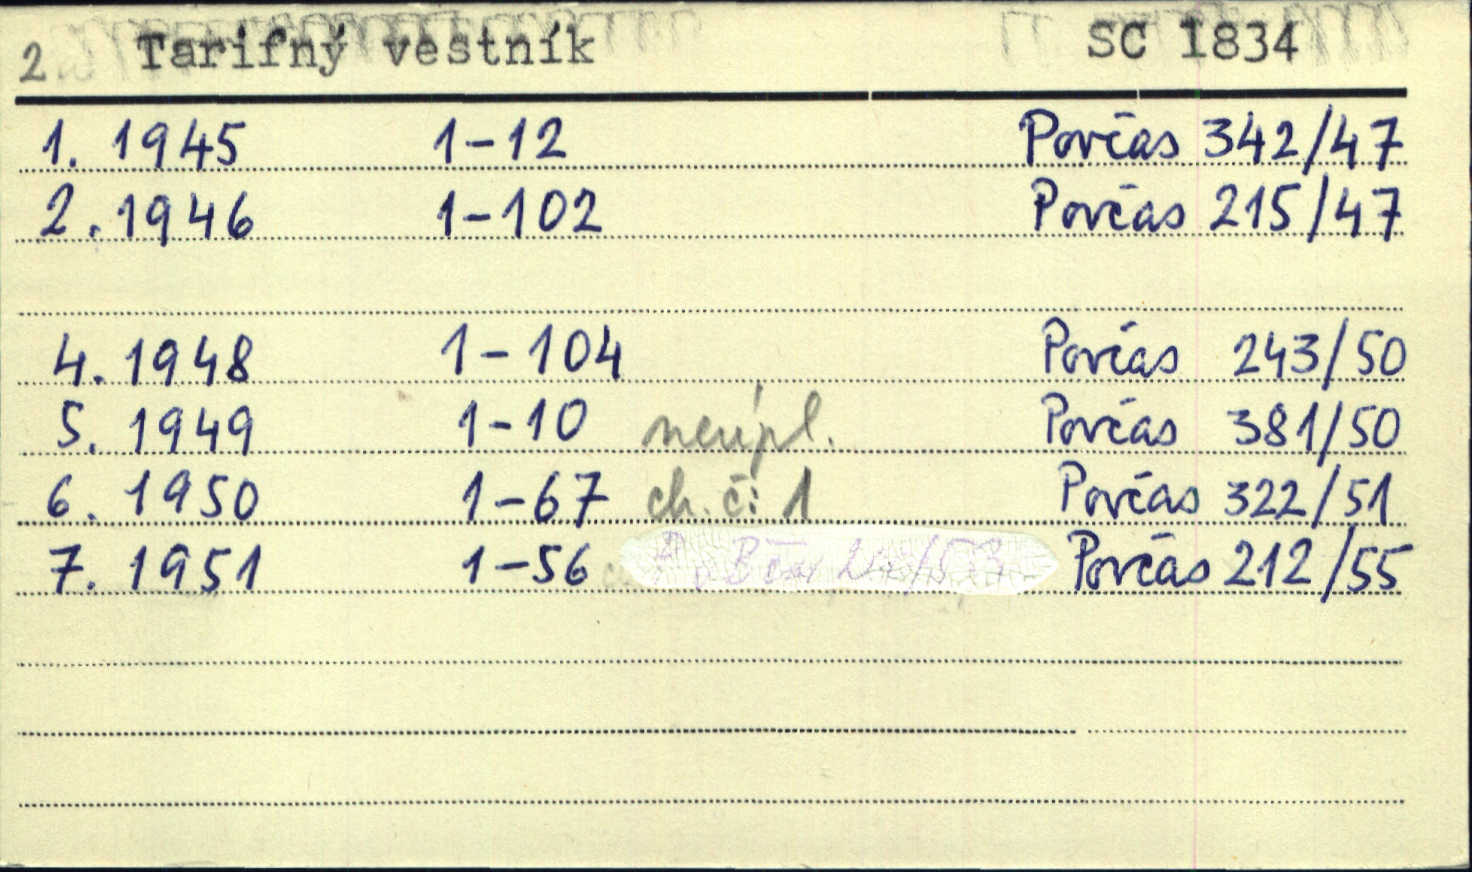 2 Tarifný vestník SC 1834
1. 1945 1-12 Povčas 342/47
2. 1946 1-102 Povčas 215/47
4. 1948 1-104 Povčas 243/50
5. 1949 1-10 neúpl. Povčas 381/50
6. 1950 1-67 ch. č: 1 Povčas 322/51
7. 1951 1-56 Povčas 212/55